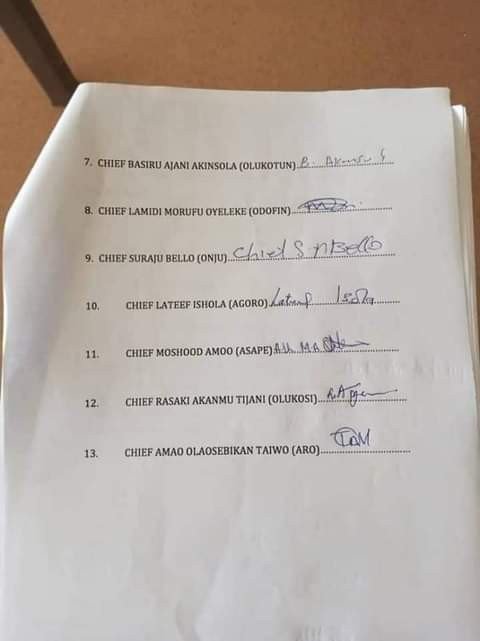 7. CHIEF BASIRU AJANI AKINSOLA (OLUKOTUN) B.
8. CHIEF LAMIDI MORUFU OYELEKE (ODOFIN)
9. CHIEF SURAJU BELLO (ONJU) Chief S Bello
10. CHIEF LATEEF ISHOLA (AGORO)
11. CHIEF MOSHOOD AMOO (ASAPE)
12. CHIEF RASAKI AKANMU TIJANI (OLUKOSI)
13. CHIEF AMAO OLAOSEBIKAN TAIWO (ARO)